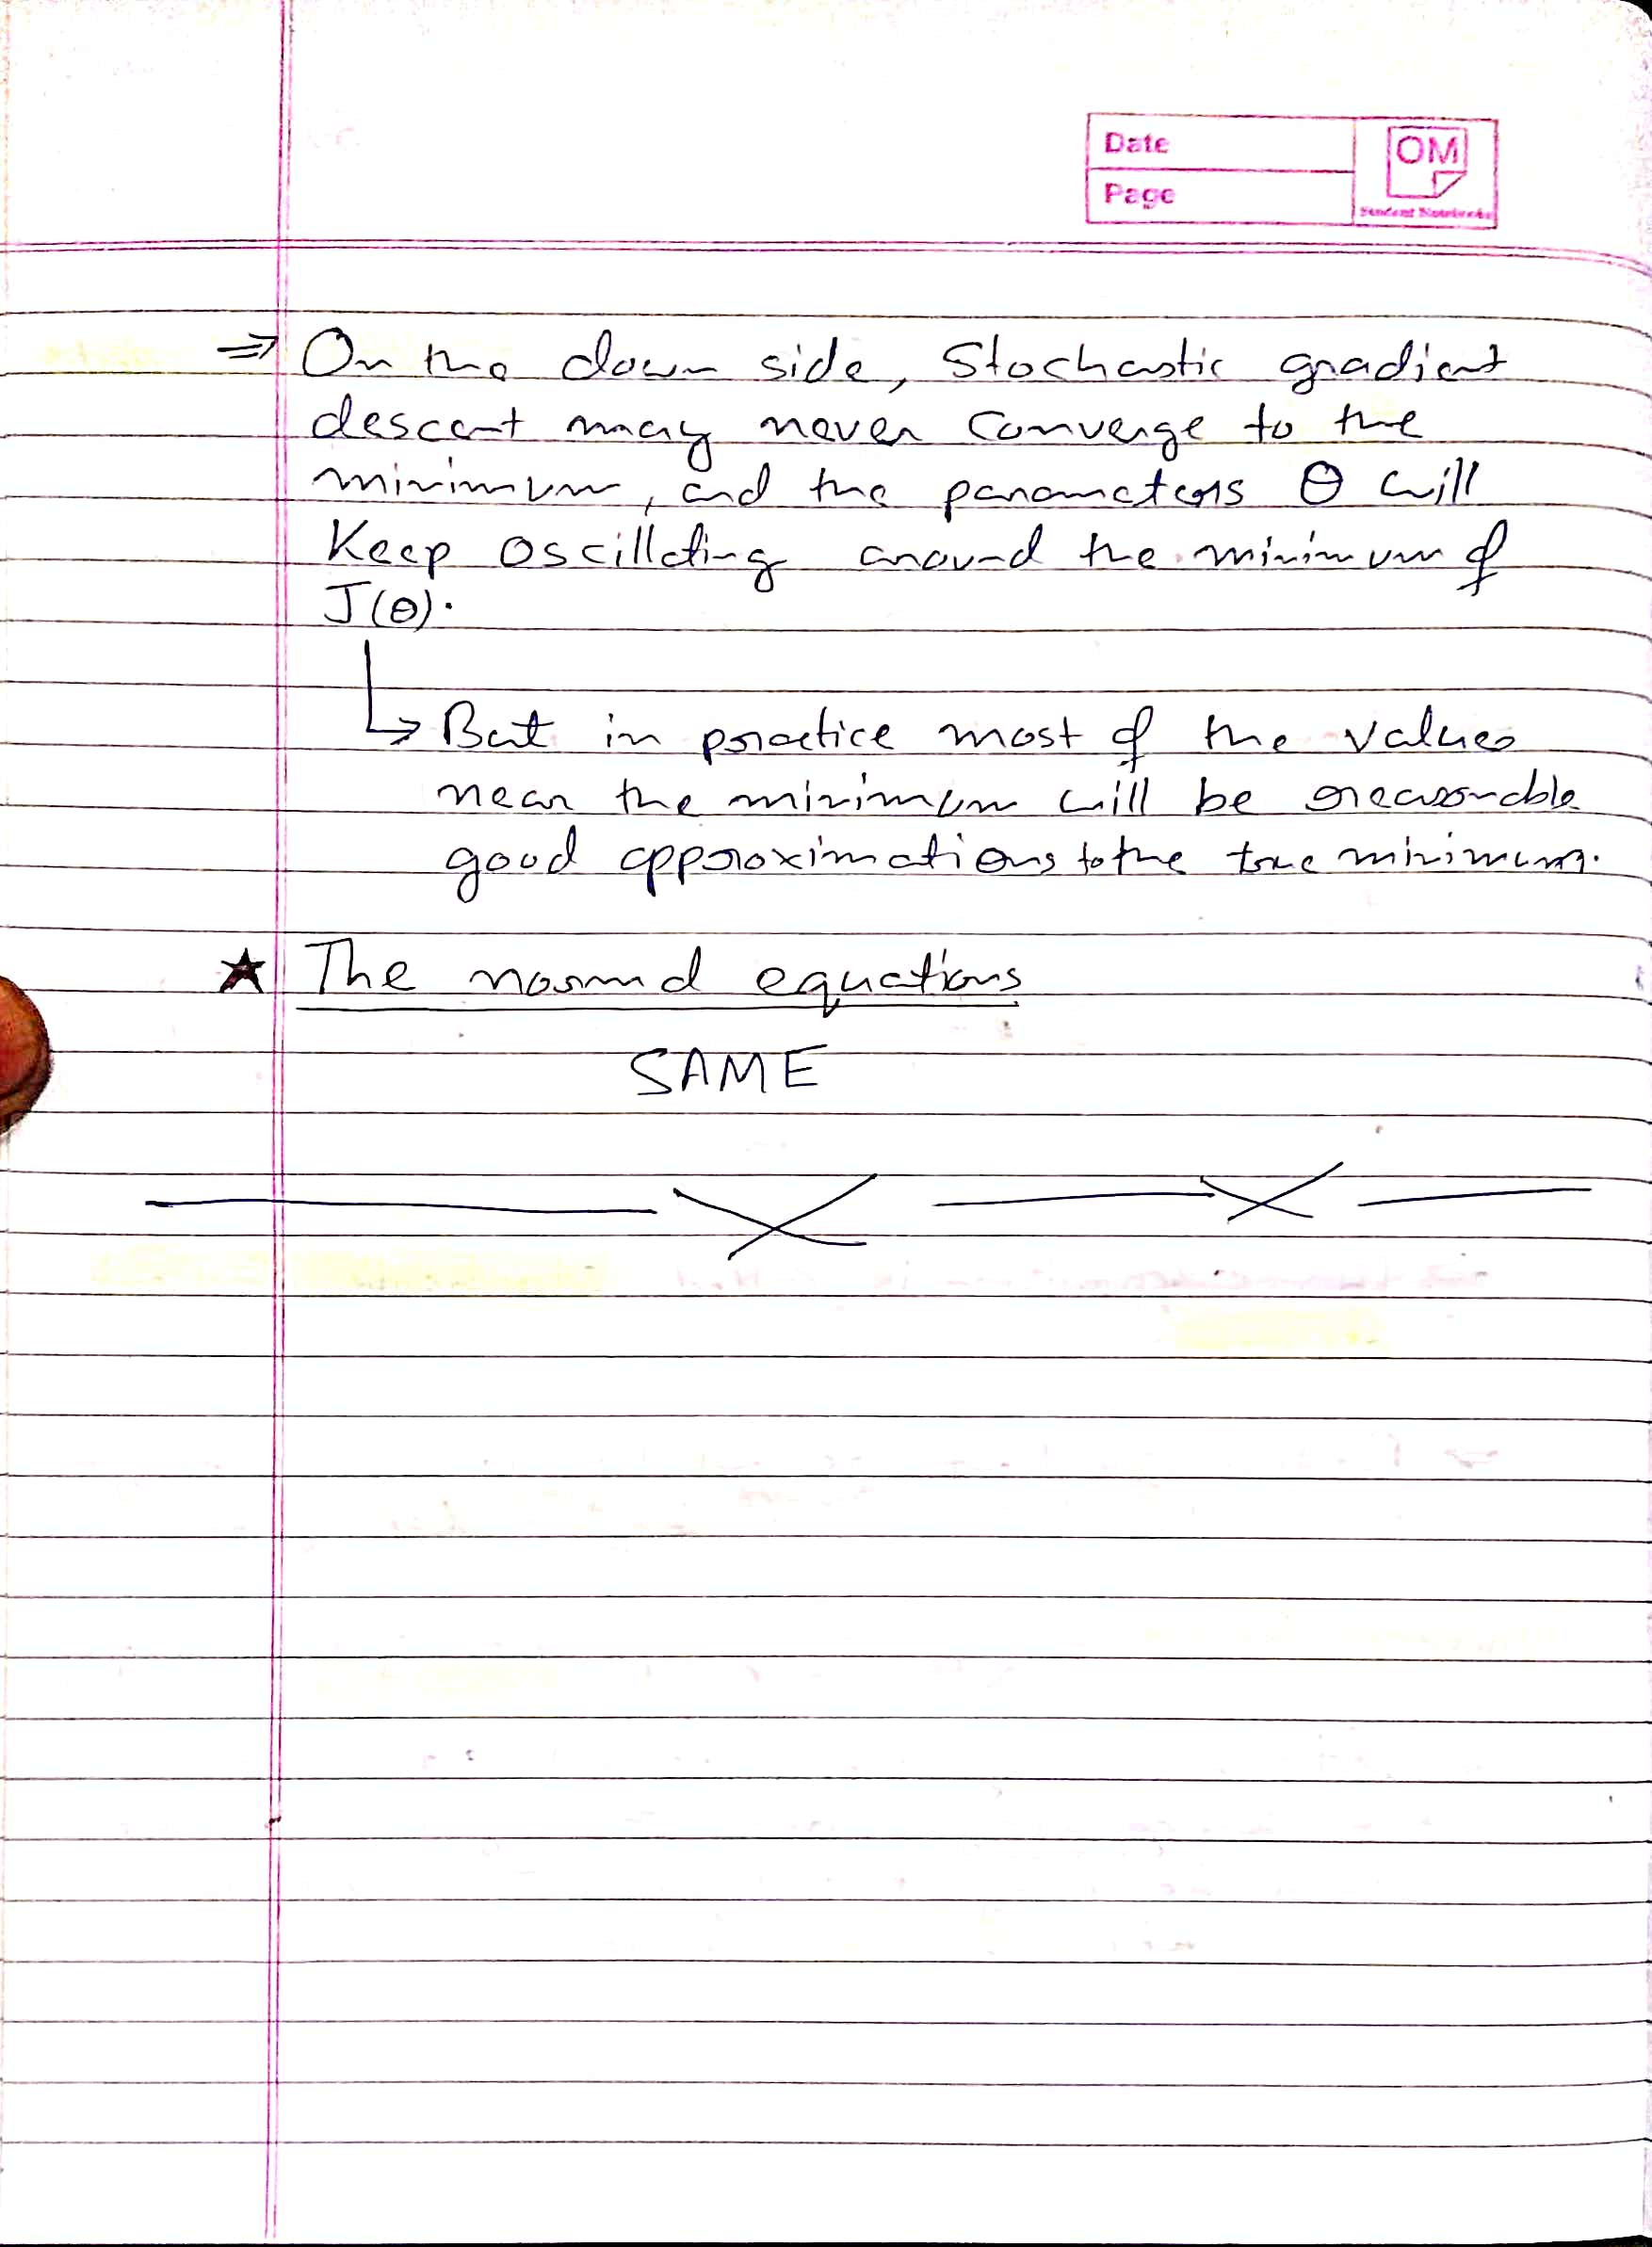 Date
Page
OM
Student Notebooks
⇒ On the down side, Stochastic gradient
descent may never converge to the
minimum, and the parameters θ will
Keep oscillating around the minimum of
J(θ).
↳ But in practice most of the values
near the minimum will be reasonable
good approximations to the true minimum.
★ The normal equations
SAME